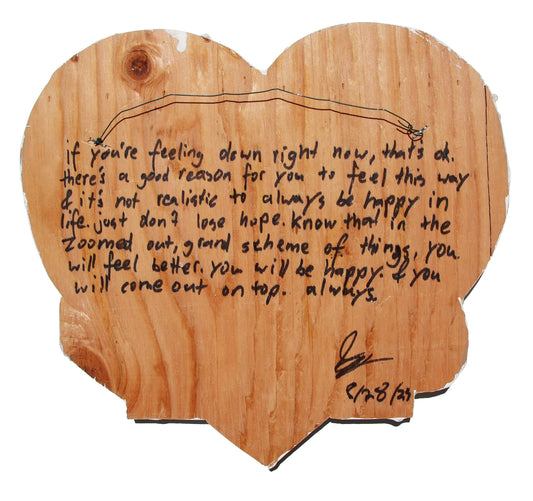 if you're feeling down right now, that's ok.
there's a good reason for you to feel this way
& it's not realistic to always be happy in
life. just don't lose hope. know that in the
zoomed out, grand scheme of things, you
will feel better. you will be happy. & you
will come out on top. always.
8/28/23